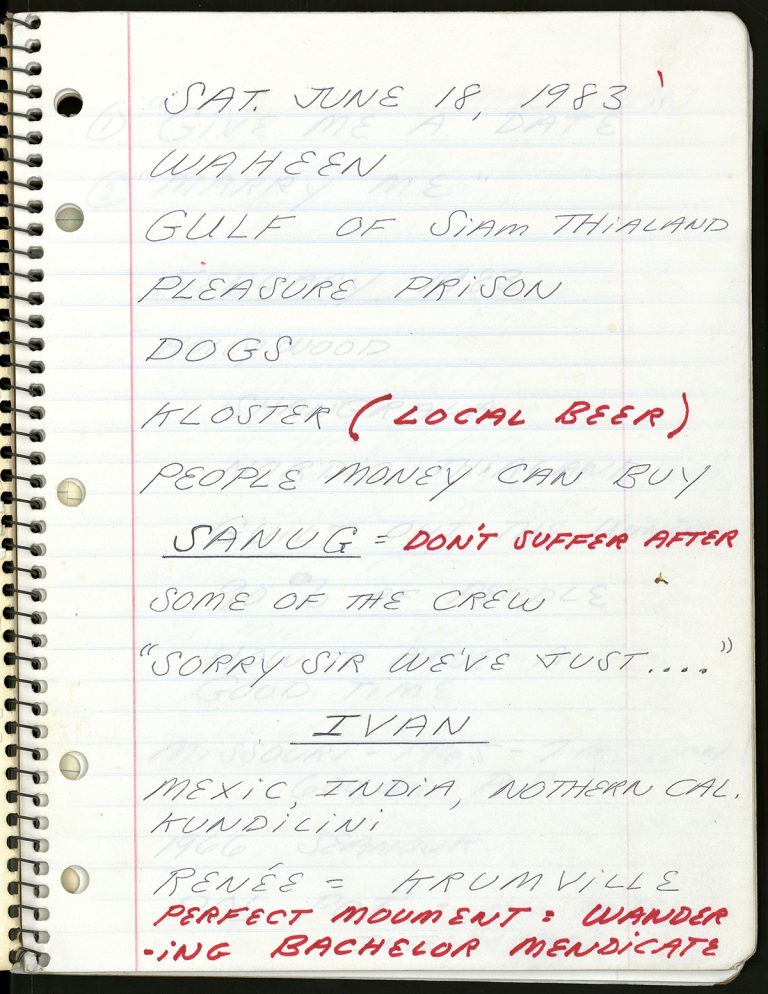 SAT. JUNE 18, 1983
WAHEEN
GULF OF SIAM THIALAND
PLEASURE PRISON
DOGS
KLOSTER (LOCAL BEER)
PEOPLE MONEY CAN BUY
SANUG = DON'T SUFFER AFTER
SOME OF THE CREW
"SORRY SIR WE'VE JUST...."
IVAN
MEXIC, INDIA, NOTHERN CAL.
KUNDILINI
RENÉE = KRUMVILLE
PERFECT MOUMENT: WANDER
-ING BACHELOR MENDICATE